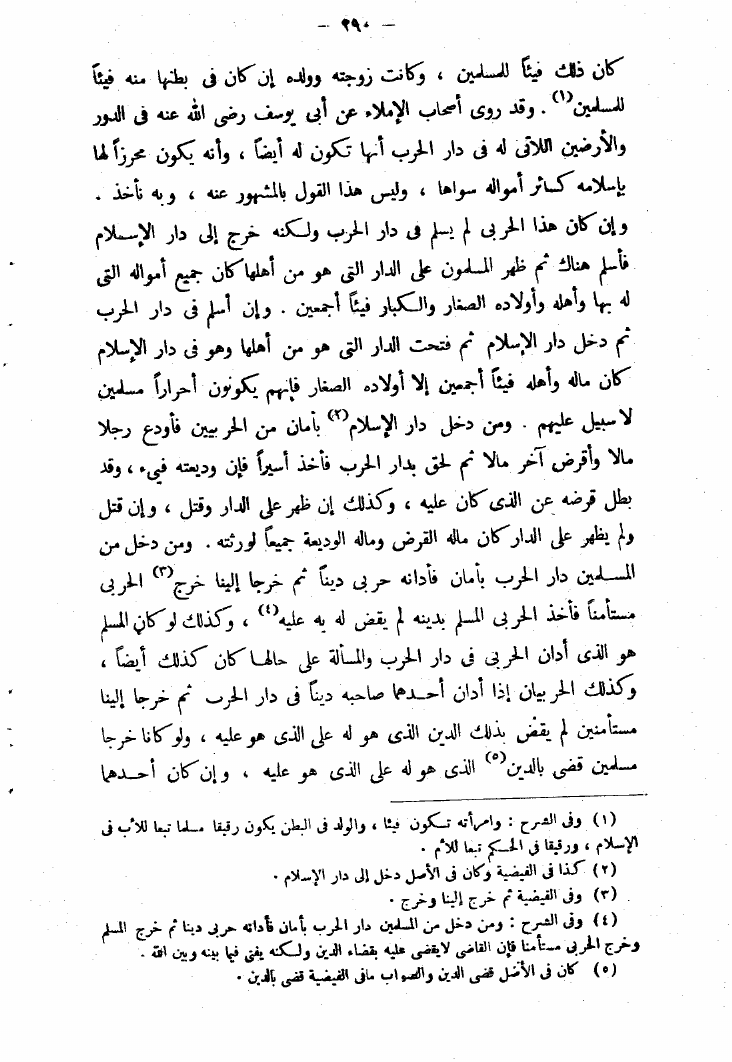 — ٢٩٠ —
كان ذلك فيئاً للمسلمين ، وكانت زوجته وولده إن كان فى بطنها منه فيئاً
للمسلمين(١) . وقد روى أصحاب الإملاء عن أبى يوسف رضى الله عنه فى الدور
والأرضين اللاتى له فى دار الحرب أنها تكون له أيضاً ، وأنه يكون محرزاً لها
بإسلامه كسائر أمواله سواها ، وليس هذا القول بالمشهور عنه ، وبه نأخذ .
وإن كان هذا الحربى لم يسلم فى دار الحرب ولكنه خرج إلى دار الإسلام
فأسلم هناك ثم ظهر المسلمون على الدار التى هو من أهلها كان جميع أمواله التى
له بها وأهله وأولاده الصغار والكبار فيئاً أجمعين . وإن أسلم فى دار الحرب
ثم دخل دار الإسلام ثم فتحت الدار التى هو من أهلها وهو فى دار الإسلام
كان ماله وأهله فيئاً أجمعين إلا أولاده الصغار فإنهم يكونون أحراراً مسلمين
لا سبيل عليهم . ومن دخل دار الإسلام(٢) بأمان من الحربيين فأودع رجلا
مالا وأقرض آخر مالا ثم لحق بدار الحرب فأخذ أسيراً فإن وديعته فىء ، وقد
بطل قرضه عن الذى كان عليه ، وكذلك إن ظهر على الدار وقتل ، وإن قتل
ولم يظهر على الدار كان ماله القرض وماله الوديعة جميعاً لورثته . ومن دخل من
المسلمين دار الحرب بأمان فأدانه حربى ديناً ثم خرجا إلينا خرج(٣) الحربى
مستأمناً فأخذ الحربى المسلم بدينه لم يقض له به عليه(٤) ، وكذلك لو كان المسلم
هو الذى أدان الحربى فى دار الحرب والمسألة على حالها كان كذلك أيضاً ،
وكذلك الحربيان إذا أدان أحدهما صاحبه ديناً فى دار الحرب ثم خرجا إلينا
مستأمنين لم يقض بذلك الدين الذى هو له على الذى هو عليه ، ولو كانا خرجا
مسلمين قضى بالدين(٥) الذى هو له على الذى هو عليه ، وإن كان أحدهما
(١) وفى الشرح : وامرأته تكون فيئا ، والولد فى البطن يكون رقيقا مسلما تبعا للأب فى
الإسلام ، ورقيقا فى الحكم تبعا للأم .
(٢) كذا فى الفيضية وكان فى الأصل دخل إلى دار الإسلام .
(٣) وفى الفيضية ثم خرج إلينا وخرج .
(٤) وفى الشرح : ومن دخل من المسلمين دار الحرب بأمان فأدانه حربى دينا ثم خرج المسلم
وخرج الحربى مستأمنا فإن القاضى لا يقضى عليه بقضاء الدين ولكنه يفتى فيما بينه وبين الله .
(٥) كان فى الأصل قضى الدين والصواب ما فى الفيضية قضى بالدين .